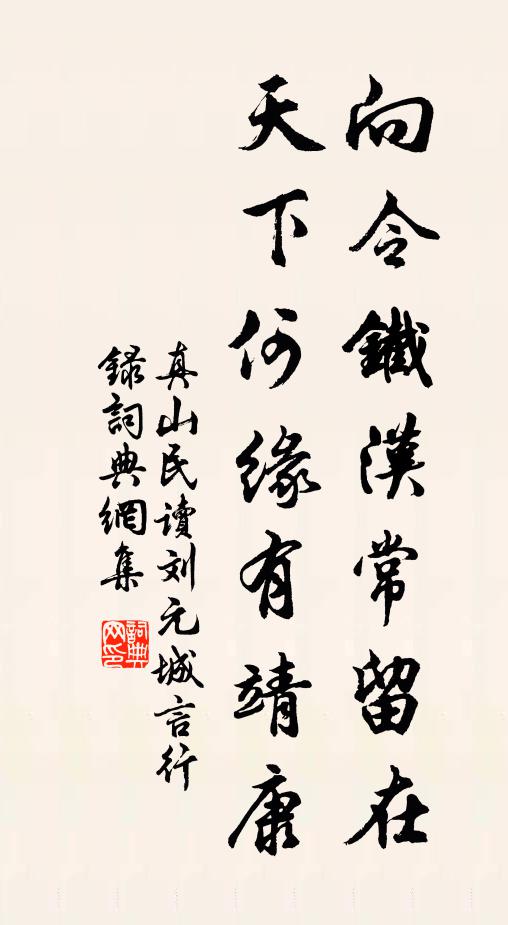 向令鐵漢常留在
天下何緣有靖康
真山民读刘元城言行
録詞典網集
詞典网印